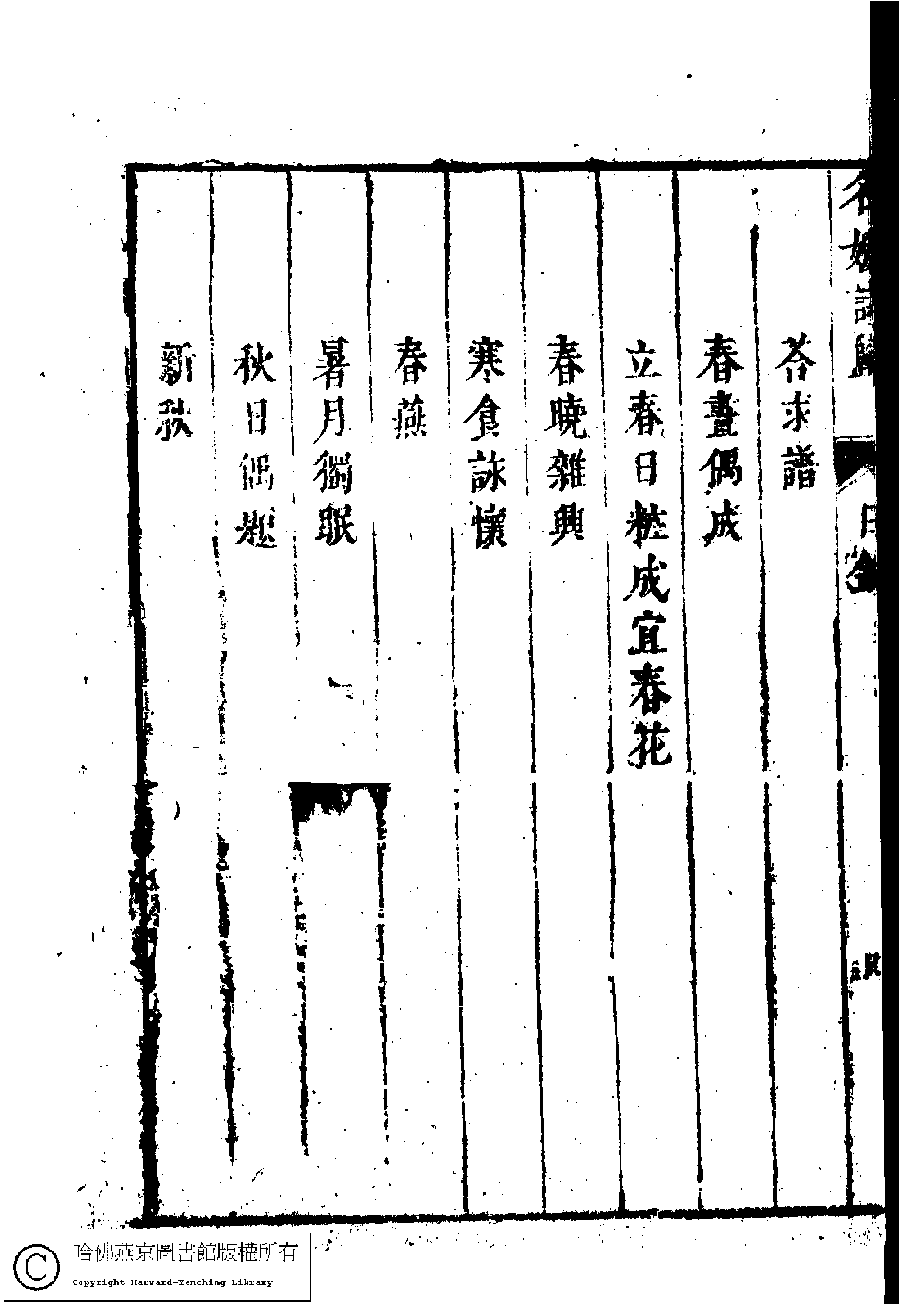 名媛詩歸
目錄
答求譜
春晝偶成
立春日粧成宜春花
春曉雜興
寒食詠懷
春燕
暑月獨眠
秋日偶題
新秋
哈佛燕京圖書館版權所有
Copyright Harvard-Yenching Library